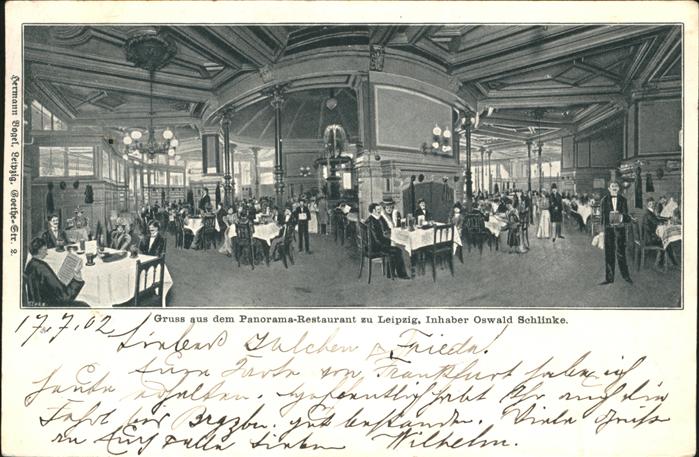 Hermann Vogel, Leipzig, Goethe-Str. 2.
Gruss aus dem Panorama-Restaurant zu Leipzig, Inhaber Oswald Schlinke.
17.7.02 Liebes Julchen & Frieda!
Eure Karte von Frankfurt habe ich
heute erhalten. Hoffentlich habt Ihr auch die
Fahrt bis gut bestanden. Viele Grüße
an Euch alle Lieben Wilhelm.